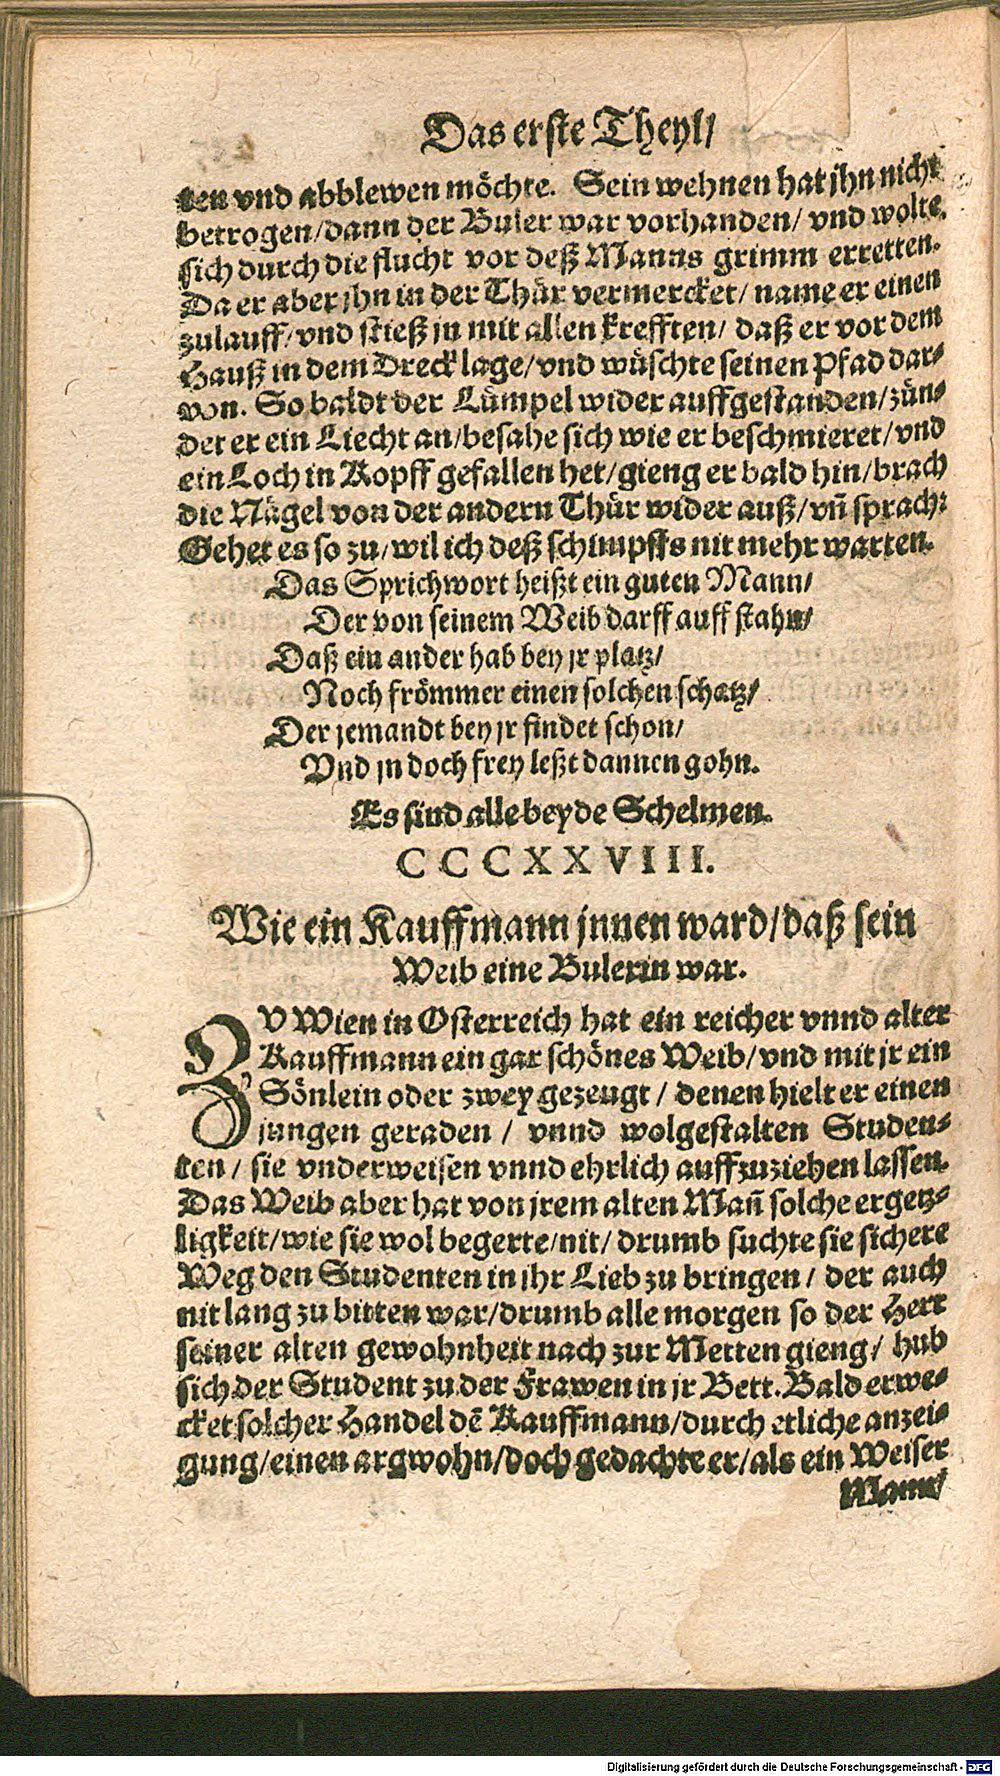 Das erste Theyl/
ten vnd abblewen möchte. Sein wehnen hat jhn nicht
betrogen/dann der Buler war vorhanden/ vnd wolte.
sich durch die flucht vor deß Manns grimm erretten.
Da er aber jhn in der Thür vermercket/ name er einen
zulauff/vnd stieß jn mit allen krefften/ daß er vor dem
Hauß in dem Dreck lage/vnd wüschte seinen Pfad dar-
von. So baldt der Lümpel wider auffgestanden/zün-
det er ein Liecht an/besahe sich wie er beschmieret/vnd
ein Loch in Kopff gefallen het/gieng er bald hin/brach
die Nägel von der andern Thür wider auß/vn̄ sprach:
Gehet es so zu/wil ich deß schimpffs nit mehr warten.
Das Sprichwort heißt ein guten Mann/
Der von seinem Weib darff auff stahn/
Daß ein ander hab bey jr platz/
Noch frömmer einen solchen schatz/
Der jemandt bey jr findet schon/
Vnd jn doch frey leßt dannen gohn.
Es sind alle beyde Schelmen.
CCCXXVIII.
Wie ein Kauffmann jnnen ward/daß sein
Weib eine Bulerin war.
ZV Wien in Osterreich hat ein reicher vnnd alter
Kauffmann ein gar schönes Weib/vnd mit jr ein
Sönlein oder zwey gezeugt/ denen hielt er einen
jungen geraden/ vnnd wolgestalten Studen-
ten/ sie vnderweisen vnnd ehrlich auffzuziehen lassen.
Das Weib aber hat von jrem alten Man̄ solche ergetz-
ligkeit/wie sie wol begerte/nit/ drumb suchte sie sichere
Weg den Studenten in jhr Lieb zu bringen/ der auch
nit lang zu bitten war/drumb alle morgen so der Herr
seiner alten gewohnheit nach zur Metten gieng/ hub
sich der Student zu der Frawen in jr Bett. Bald erwe-
cket solcher Handel dē Kauffmann/durch etliche anzei-
gung/einen argwohn/doch gedachte er/als ein Weiser
Mann/
Digitalisierung gefördert durch die Deutsche Forschungsgemeinschaft - DFG